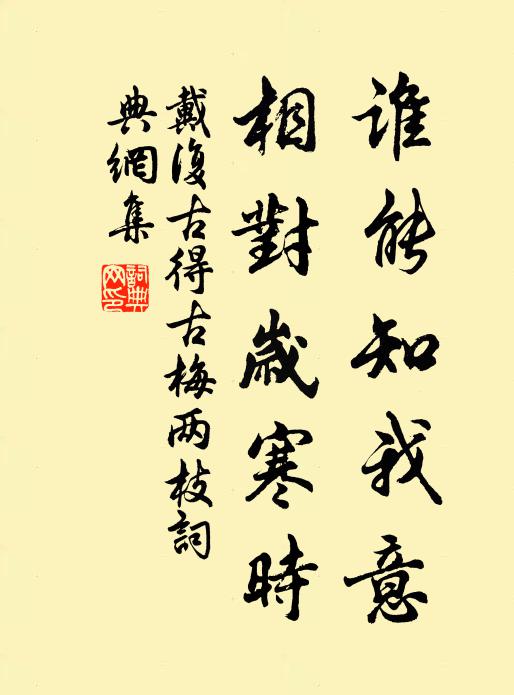 谁能知我意
相對歲寒時
戴復古得古梅两枝詞
典網集
詞典
网印